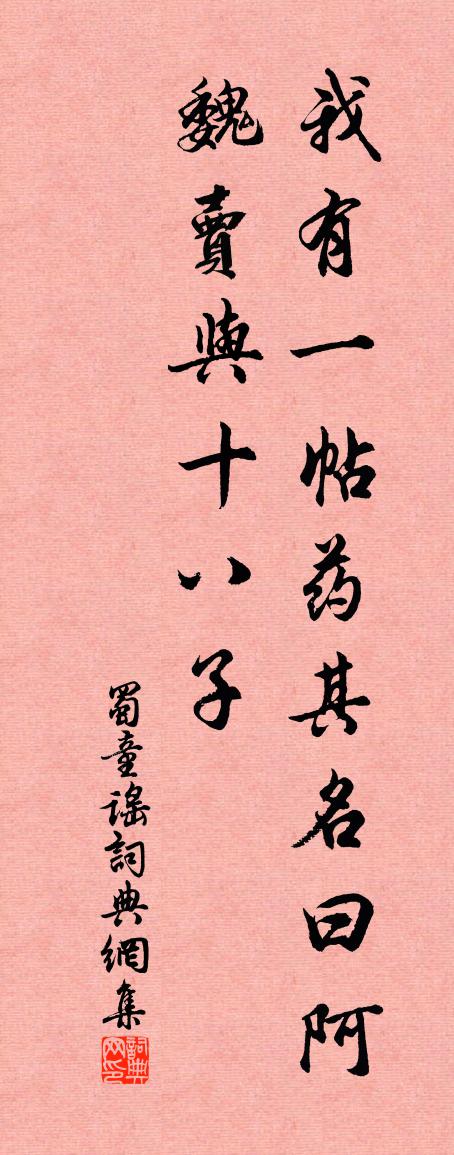 我有一帖药其名曰阿
魏賣與十八子
蜀童謠詞典網集
詞典网印